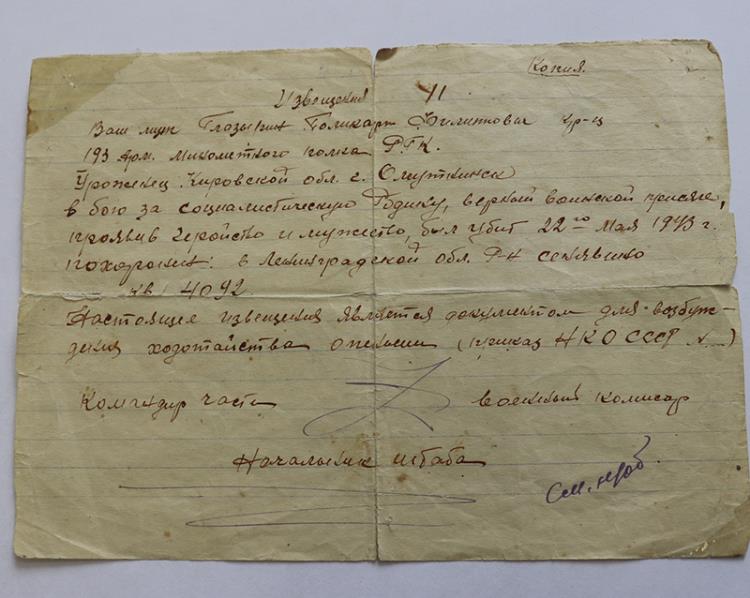 Копия.
Извещения 11
Ваш муж Глазырин Поликарп Филиппович кр-ц
193 Арм. миномётного полка РГК.
Уроженец Кировской обл. г. Омутнинск
в бою за социалистическую Родину, верный воинской присяге,
проявив геройство и мужество, был убит 22го мая 1943 г.
похоронен: в Ленинградской обл. Р-н Сенявино
кв 4092
Настоящее извещения является документом для возбуж-
дения ходотайства о пенсии (приказ НКО СССР №...)
Командир части военный комисар
Начальник штаба